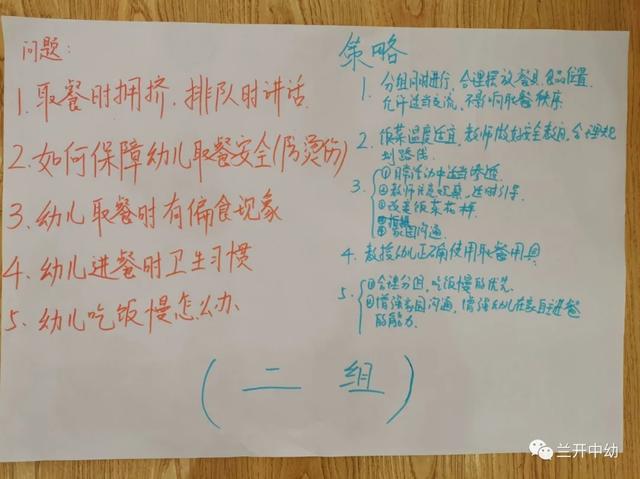 问题:
1.取餐时拥挤.排队时讲话
2.如何保障幼儿取餐安全(防烫伤)
3.幼儿取餐时有偏食现象
4.幼儿进餐时卫生习惯
5.幼儿吃饭慢怎么办
策略
1. 分组同时进行,合理摆放餐具、食品位置
允许适当交流,不影响取餐秩序.
2. 饭菜温度适宜,教师做好安全教育,合理规
划路线
3. ①日常活动中适当渗透
②教师注意观察,适时引导
③改进饭菜花样.
④家园沟通
4. 教授幼儿正确使用取餐用具
5. ①合理分组,吃饭慢的优先
②增强家园沟通,增强幼儿在家自主进餐
的能力.
(二组)
兰开中幼